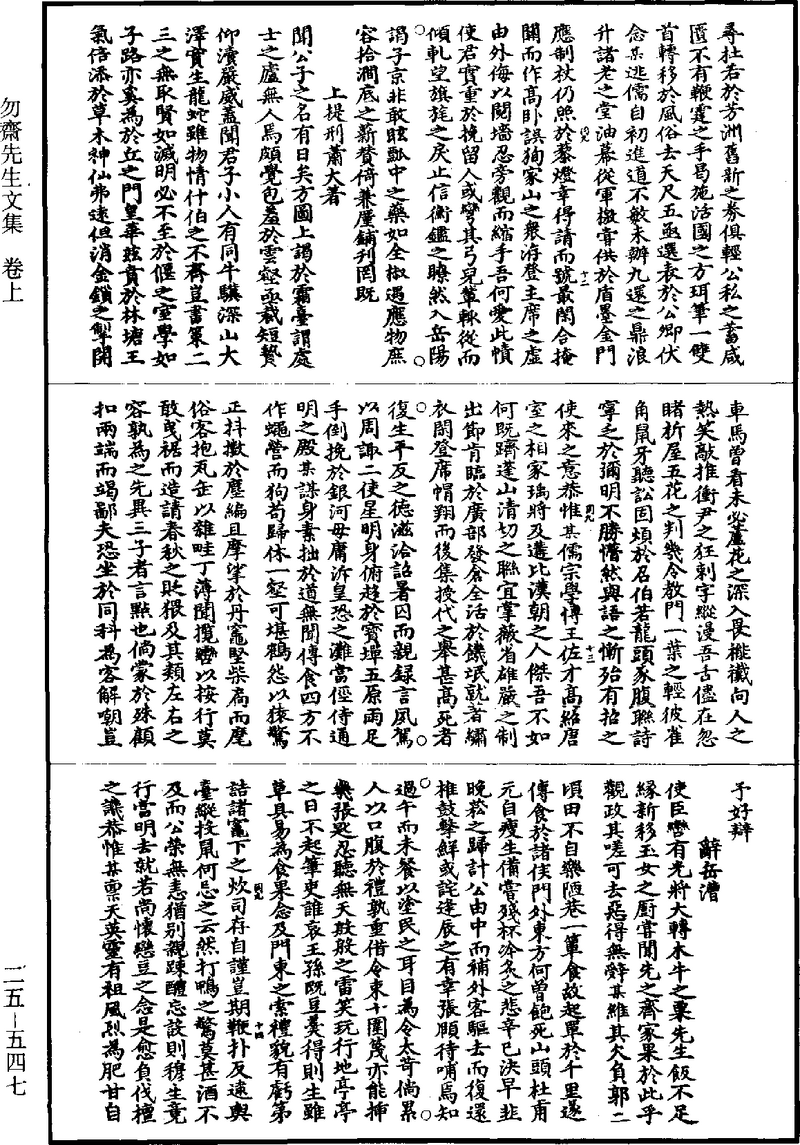 勿齋先生文集　卷上
二五－五四七
尋杜若於芳洲舊新之券俱輕公私之蓄咸
匱不有鞭霆之手曷施活國之方珥筆一雙
首轉移於風俗去天尺五亟選表於公卿伏
念某逃儒自初進道不敏未辦九還之鼎浪
升諸老之堂油幕從軍檄嘗供於盾墨金門
應制杖仍照於藜燈幸得請而號最閑合掩
關而作高卧誤徇家山之衆洊登主席之虛
由外侮以鬩墻忍旁觀而縮手吾何愛此憤
使君實重於挽留人或彎其弓兒輩輙從而
傾軋望旗旄之戾止信衡鑑之瞭然入岳陽
謁子京非敢眩瓢中之藥如全椒遇應物庶
容拾澗底之薪贊倚兼厪鋪刋罔既
上提刑蕭大著
聞公子之名有日矣方圖上謁於霜臺謂處
士之廬無人焉頗覺包羞於雲壑亟裁短贄
仰凟嚴威蓋聞君子小人有同牛驥深山大
澤實生龍蛇雖物情什伯之不齊豈書策二
三之無取賢如滅明必不至於偃之室學如
子路亦奚為於丘之門皇華玆賁於林塘王
氣倍添於草木神仙弗遠但消金鎖之掣開
車馬曾看未必蘆花之深入畏襁襶向人之
熱笑敲推衝尹之狂刺字縱漫吾舌儘在忽
睹折屋五花之判幾令敎門一葉之輕彼雀
角鼠牙聽訟固煩於召伯若龍頭豕腹聯詩
寧乏於彌明不勝懵然與語之慚殆有招之
使來之意恭惟某儒宗學博王佐才高紹唐
室之相家瑀將及遘比漢朝之人傑吾不如
何既躋蓬山清切之聯宜掌薇省雄嚴之制
出節肯臨於廣部發倉全活於饑氓就著繡
衣閒登席帽翔而後集授代之舉甚高死者
復生平反之德滋洽詔署囚而親録言風駕
以周諏二使星明身俯趨於寳墠五原雨足
手倒挽於銀河毋庸泝皇恐之灘當徑侍通
明之殿某謀身素拙於道無聞傳食四方不
作蠅營而狗苟歸休一壑可堪鶴怨以猿驚
正抖擻於塵編且摩挲於丹竈堅柴扃而麾
俗客抱瓦缶以雜畦丁薄聞攬轡以按行莫
敢曵裾而造請春秋之貶猥及其類左右之
容孰為之先異三子者言點也倘蒙於殊顧
扣兩端而竭鄙夫恐坐於同科為客解嘲豈
予好辯
辭岳漕
使臣轡有光將大轉木牛之粟先生飯不足
緣新移玉女之厨嘗聞先之齊家果於此乎
觀政其嗟可去惡得無辭某維其欠負郭二
頃田不自樂陋巷一簞食故起單於千里遂
傳食於諸侯門外東方何曾飽死山頭杜甫
元自瘦生備嘗殘杯冷炙之悲辛已決早韭
晚菘之歸計公由中而補外客驅去而復還
椎鼓擊鮮或詫逢辰之有幸張頤待哺焉知
過午而未餐以塗民之耳目為令太苛倘累
人以口腹於禮孰重借令東十圍蔑亦能挿
藥張匙忍聽無天鼓般之雷笑玩行地亭亭
之日不起筆吏誰哀王孫既豆羮得則生雖
草具易為食果念及門東之索禮貌有虧第
詰諸竈下之炊司存自謹豈期鞭扑反速輿
臺縱投鼠何忌之云然打鴨之驚莫甚酒不
及而公榮無恚猶別親踈醴忘設則穆生竟
行當明去就若尚懷戀豆之念是愈負伐檀
之譏恭惟某禀天英靈有祖風烈為肥甘自